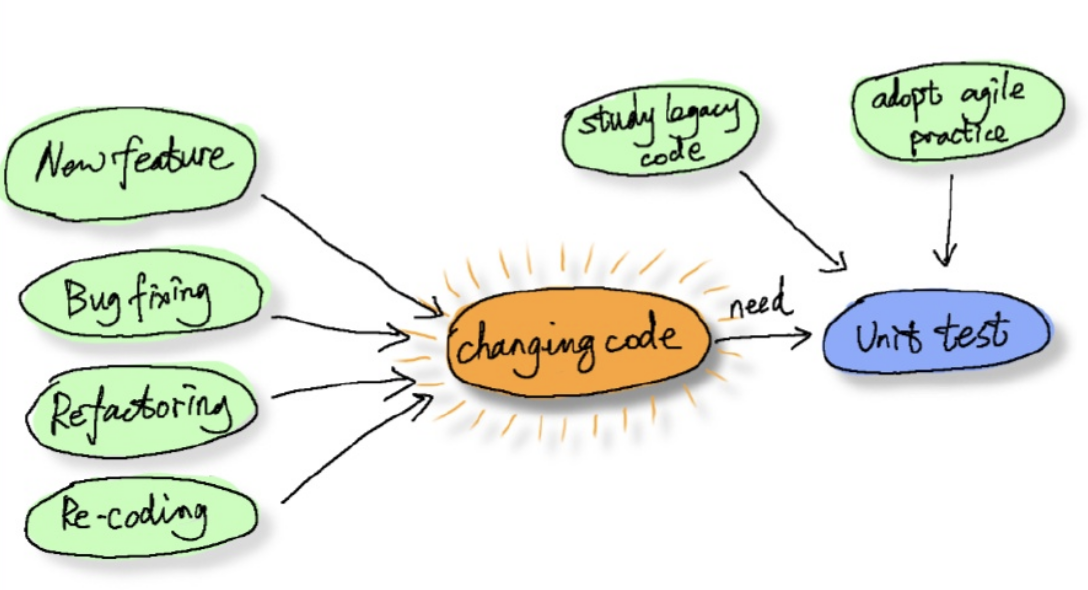 New feature
Bug fixing
Refactoring
Re-coding
changing code
need
study legacy
code
adopt agile
practice
Unit test